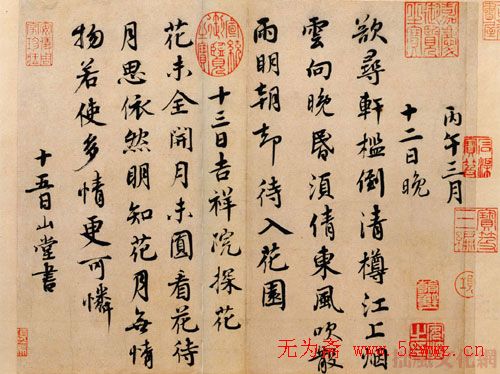 丙午三月
十二日晚
欲尋軒檻倒清樽江上烟
雲向晚昏須倩東風吹散
雨明朝却待入花園
十三日吉祥院探花
花未全開月未圓看花待
月思依然明知花月無情
物若使多情更可憐
十五日山堂書
无为斋 www.52wwz.cn